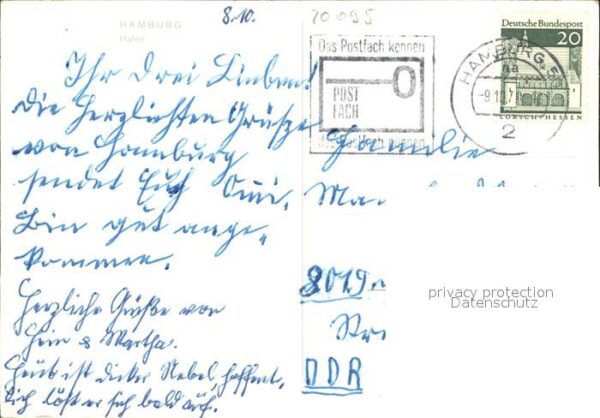 HAMBURG
Hafen
8.10.
20095
Das Postfach kennen
POST
FACH
das Postfach nennen
HAMBURG
-9.10.7
2
Deutsche Bundespost
20
LORSCH-HESSEN
Ihr Drei Lieben!
Die herzlichsten Grüsse
von Hamburg
sendet Euch Omi.
Bin gut ange-
kommen.
Herzliche Grüße von
Hein & Martha.
Heute ist dicker Nebel, hoffent-
lich löst er sich bald auf.
Familie
Ma
8019
DDR
privacy protection
Datenschutz